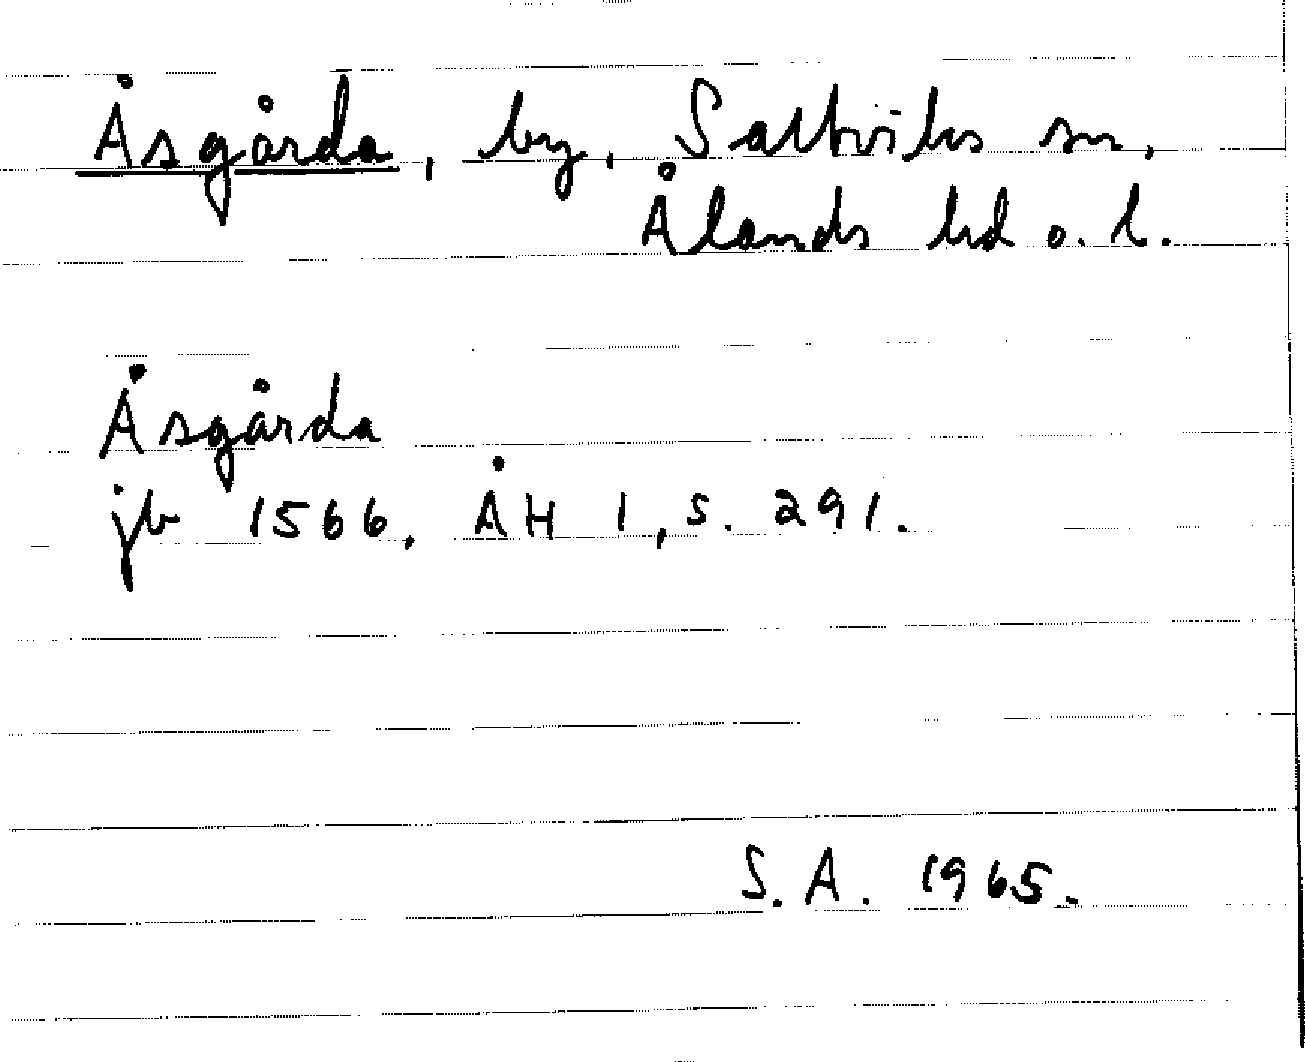 Åsgårda, by, Saltviks sn,
Ålands hd o. l.
Åsgårda
jb 1566. ÅH 1, s. 291.
S. A. 1965.